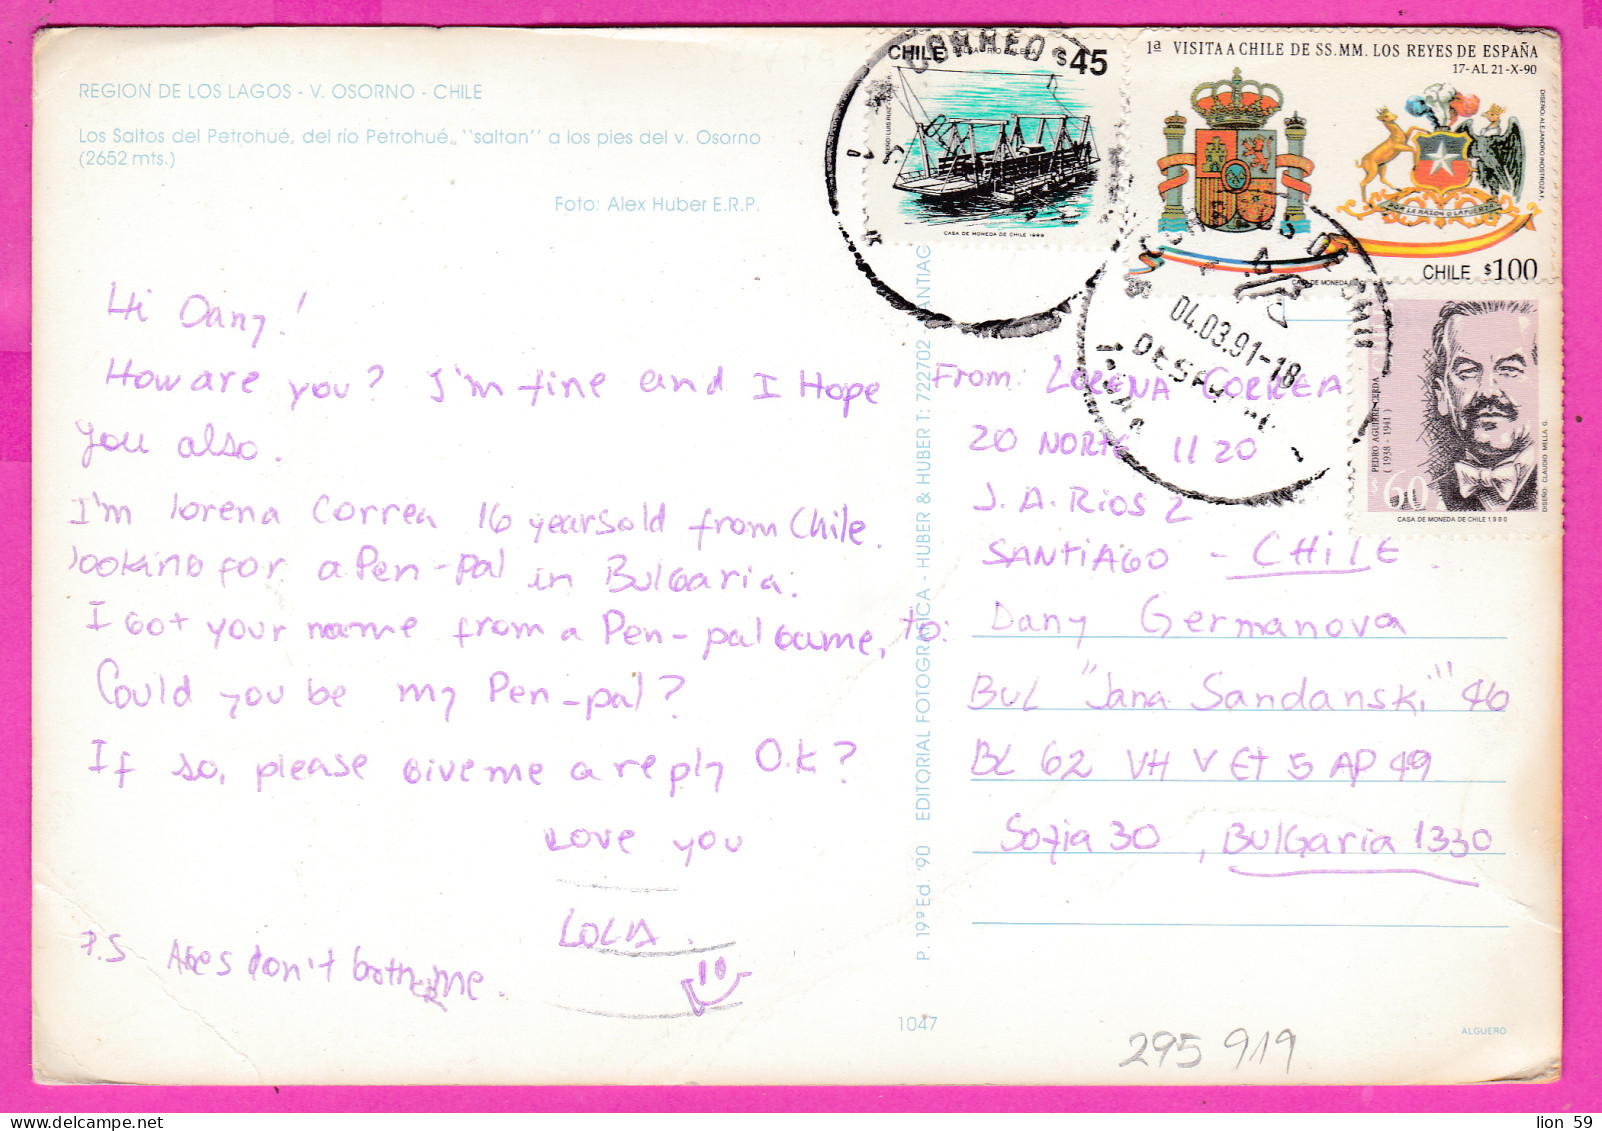 REGION DE LOS LAGOS - V. OSORNO - CHILE
Los Saltos del Petrohué, del río Petrohué, "saltan" a los pies del v. Osorno
(2652 mts.)
Foto: Alex Huber E.R.P.
Hi Dany!
How are you? I'm fine and I Hope
you also.
I'm lorena Correa 16 years old from Chile.
looking for a Pen-pal in Bulgaria.
I Got your name from a Pen-pal Game,
Could you be my Pen-pal?
If so, please Give me a reply O.K?
Love you
LOLA.
P.S Ages don't bother me.
P. 19º Ed. '90 EDITORIAL FOTOGRAFICA - HUBER & HUBER T: 722702 - SANTIAG
1047
CHILE BALSA RIO PALENA $45
CASA DE MONEDA DE CHILE 1989
1a VISITA A CHILE DE SS.MM. LOS REYES DE ESPAÑA
17-AL 21-X-90
DISEÑO: ALEJANDRO INOSTROZA F.
POR LA RAZON O LA FUERZA
CHILE $100
CASA DE MONEDA
CORREO
04.03.91-18
PEDRO AGUIRRE CERDA
(1938 - 1941)
$60
DISEÑO: CLAUDIO MILLA G.
CASA DE MONEDA DE CHILE 1990
From: LORENA CORREA
20 NORTE 1120
J. A. Rios 2
SANTIAGO - CHILE.
to: Dany Germanova
BUL "Jana Sandanski" 46
BL 62 VH V ET 5 AP 49
Sofia 30, BULGaria 1330
ALGUERO
295 919
lion 59